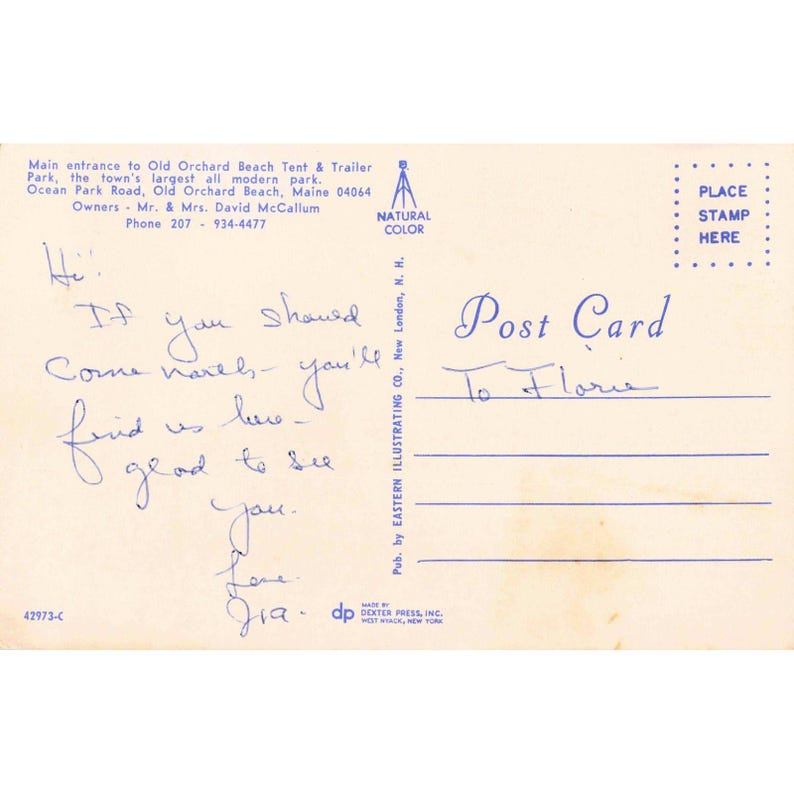 Main entrance to Old Orchard Beach Tent & Trailer
Park, the town's largest all modern park.
Ocean Park Road, Old Orchard Beach, Maine 04064
Owners - Mr. & Mrs. David McCallum
Phone 207 - 934-4477
Hi!
If you should
Come north - you'll
find us here -
glad to see
you.
Love
42973-C
NATURAL
COLOR
Pub. by EASTERN ILLUSTRATING CO., New London, N. H.
dp
MADE BY
DEXTER PRESS, INC.
WEST NYACK, NEW YORK
PLACE
STAMP
HERE
Post Card
To Florie